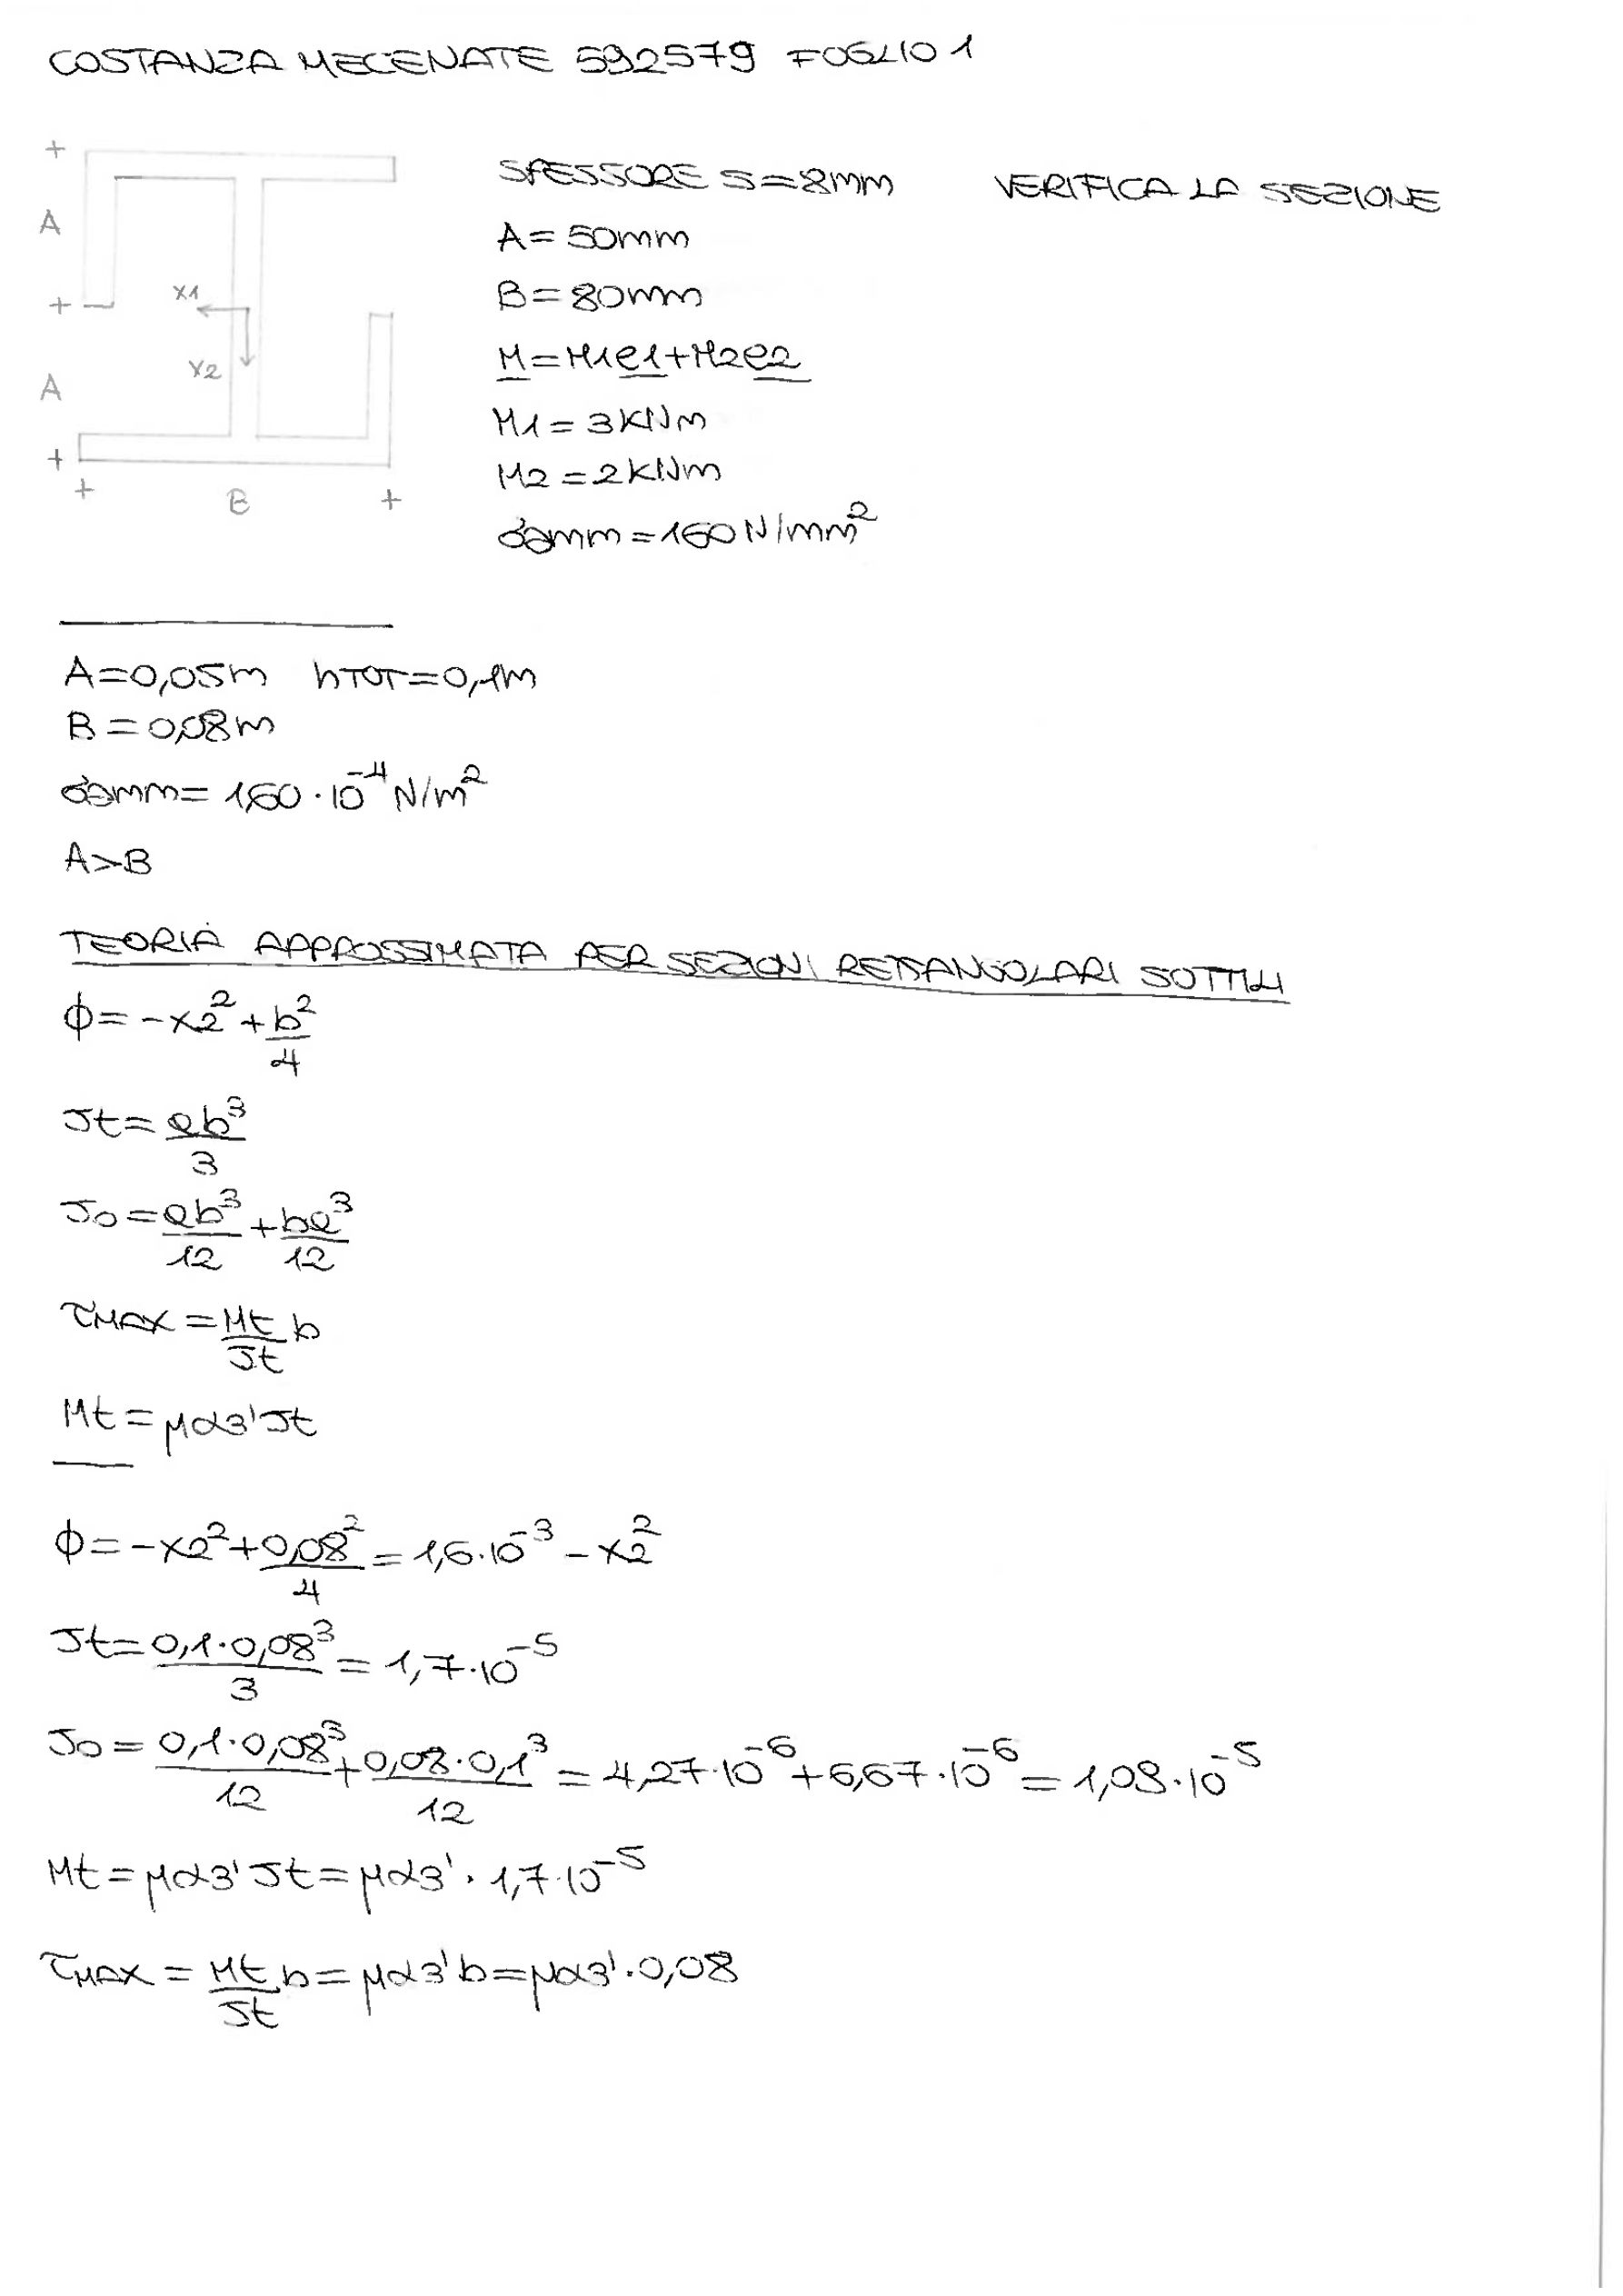 COSTANZA MECENATE 592579 FOGLIO 1
+
A
+
A
+
+ B +
X1
X2
SPESSORE S=8mm VERIFICA LA SEZIONE
A=50mm
B=80mm
M=M1e1+M2e2
M1=3KNm
M2=2KNm
σamm=160N/mm²
A=0,05m hTOT=0,1m
B=0,08m
σamm=1,60·10⁻⁴N/m²
A>B
TEORIA APPROSSIMATA PER SEZIONI RETTANGOLARI SOTTILI
ϕ=-x2²+b²/4
Jt=ab³/3
Jo=ab³/12+ba³/12
τMAX=Mt/Jt b
Mt=μα3'Jt
ϕ=-x2²+0,08²/4=1,6·10⁻³-x2²
Jt=0,1·0,08³/3=1,7·10⁻⁵
Jo=0,1·0,08³/12+0,08·0,1³/12=4,27·10⁻⁶+6,67·10⁻⁶=1,09·10⁻⁵
Mt=μα3'Jt=μα3'·1,7·10⁻⁵
τMAX=Mt/Jt b=μα3'b=μα3'·0,08